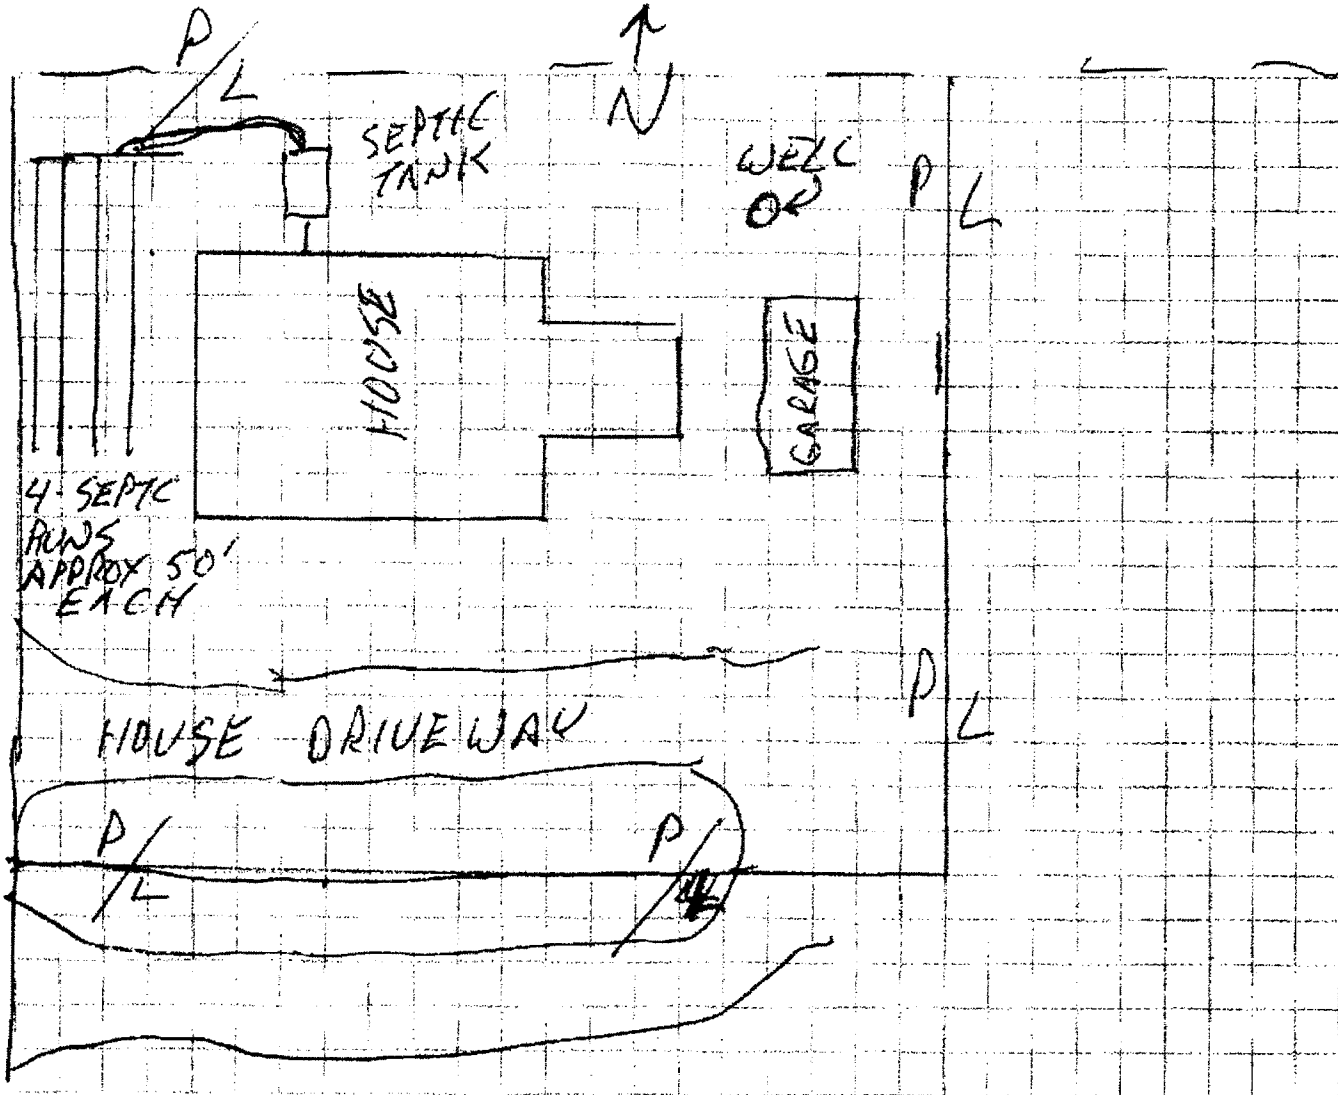 P/L
N
SEPTIC
TANK
WELL
P/L
HOUSE
GARAGE
4-SEPTC
RUNS
APPROX 50'
EACH
P/L
HOUSE DRIVEWAY
P/L
P/L